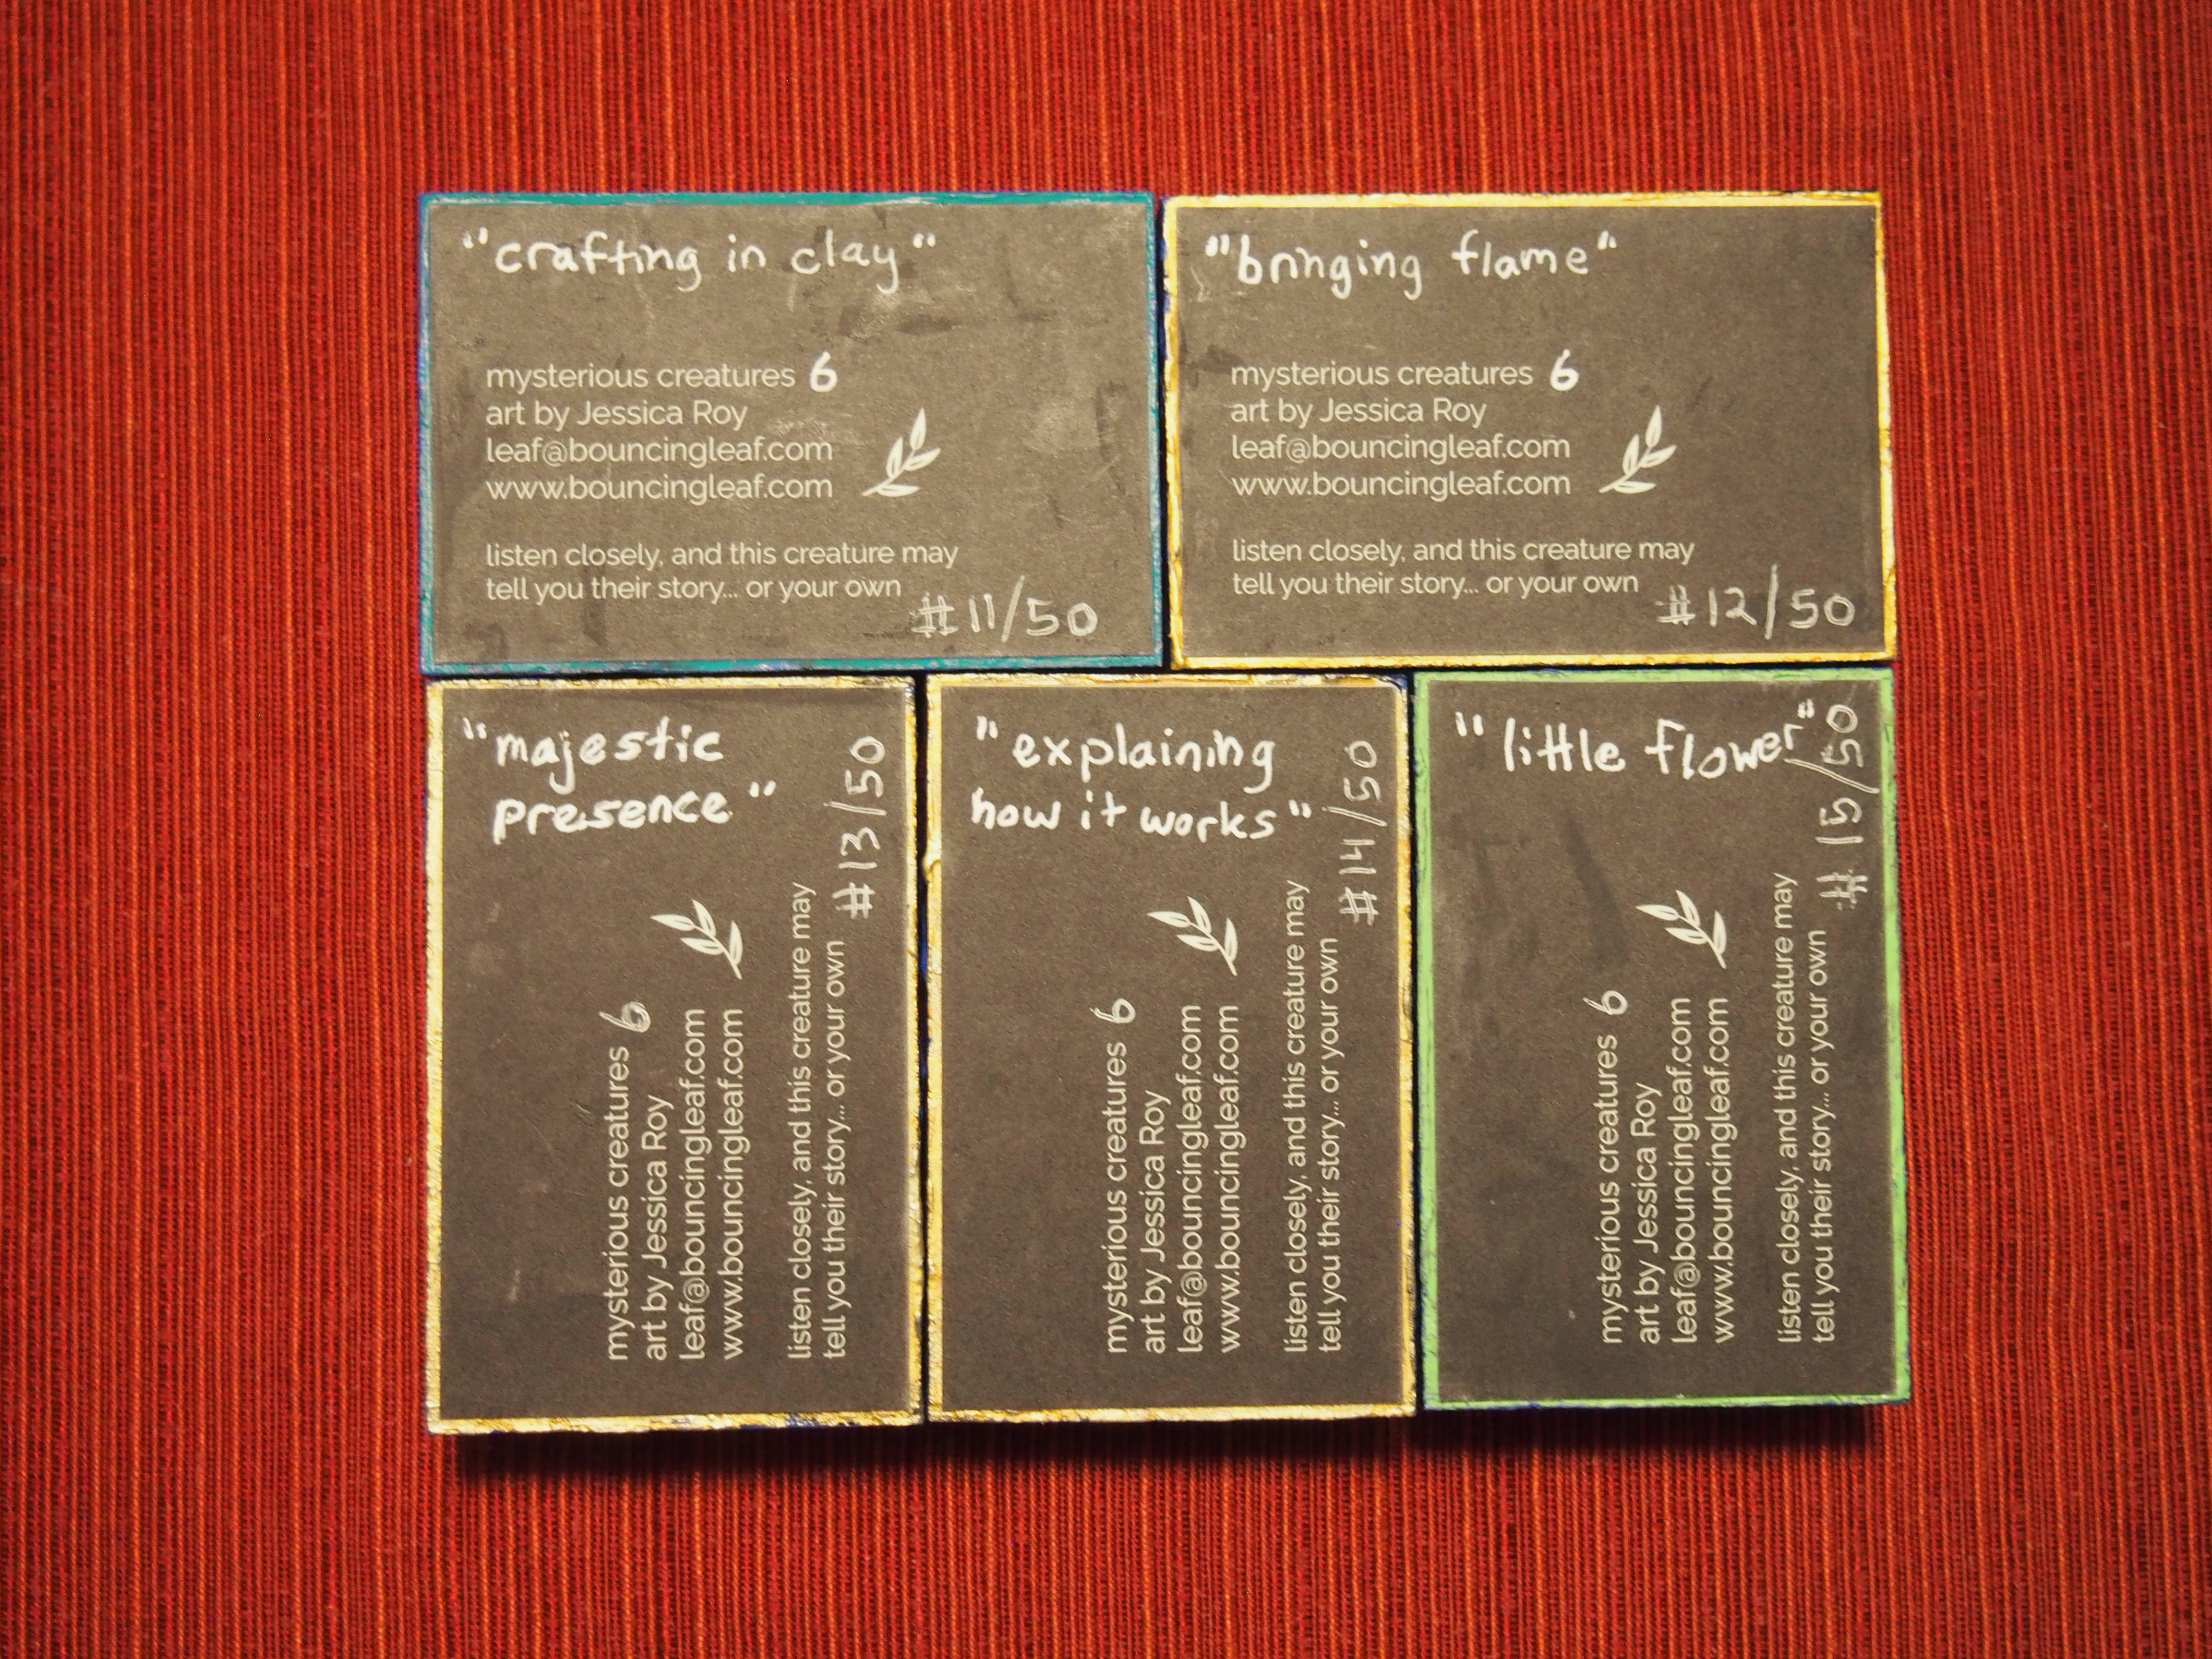 "crafting in clay"
mysterious creatures 6
art by Jessica Roy
leaf@bouncingleaf.com
www.bouncingleaf.com
listen closely, and this creature may
tell you their story... or your own
#11/50
"bringing flame"
mysterious creatures 6
art by Jessica Roy
leaf@bouncingleaf.com
www.bouncingleaf.com
listen closely, and this creature may
tell you their story... or your own
#12/50
"majestic
presence"
mysterious creatures 6
art by Jessica Roy
leaf@bouncingleaf.com
www.bouncingleaf.com
listen closely, and this creature may
tell you their story... or your own
#13/50
"explaining
how it works"
mysterious creatures 6
art by Jessica Roy
leaf@bouncingleaf.com
www.bouncingleaf.com
listen closely, and this creature may
tell you their story... or your own
#14/50
"little flower"
mysterious creatures 6
art by Jessica Roy
leaf@bouncingleaf.com
www.bouncingleaf.com
listen closely, and this creature may
tell you their story... or your own
#15/50